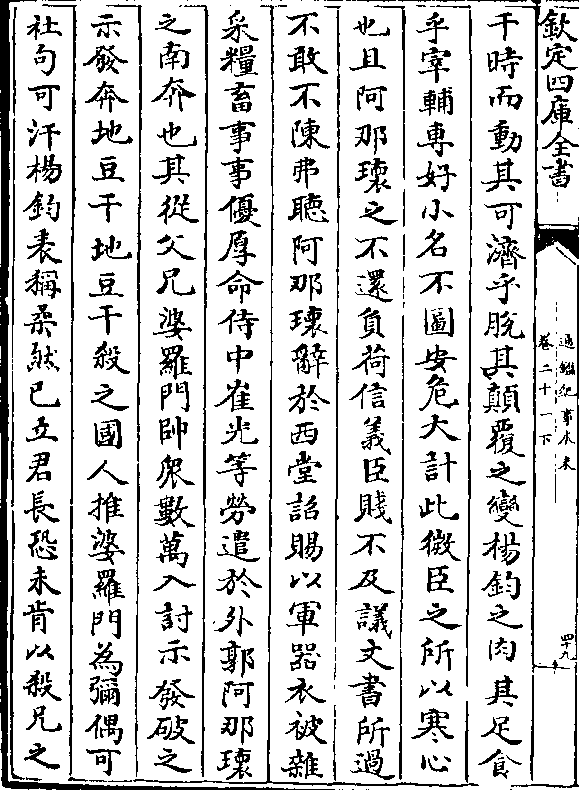 欽定四庫全書
通鑑紀事本末
卷二十一下
四十九
干時而動其可濟乎脫其顛覆之變楊鈞之肉其足食
乎宰輔專好小名不圖安危大計此微臣之所以寒心
也且阿那瓌之不還負荷信義臣賤不及議文書所過
不敢不陳弗聽阿那瓌辭於西堂詔賜以軍器衣被雜
采糧畜事事優厚命侍中崔光等勞遣於外郭阿那瓌
之南奔也其從父兄婆羅門帥衆數萬入討示發破之
示發奔地豆干地豆干殺之國人推婆羅門為彌偶可
社句可汗楊鈞表稱柔然已立君長恐未肯以殺兄之